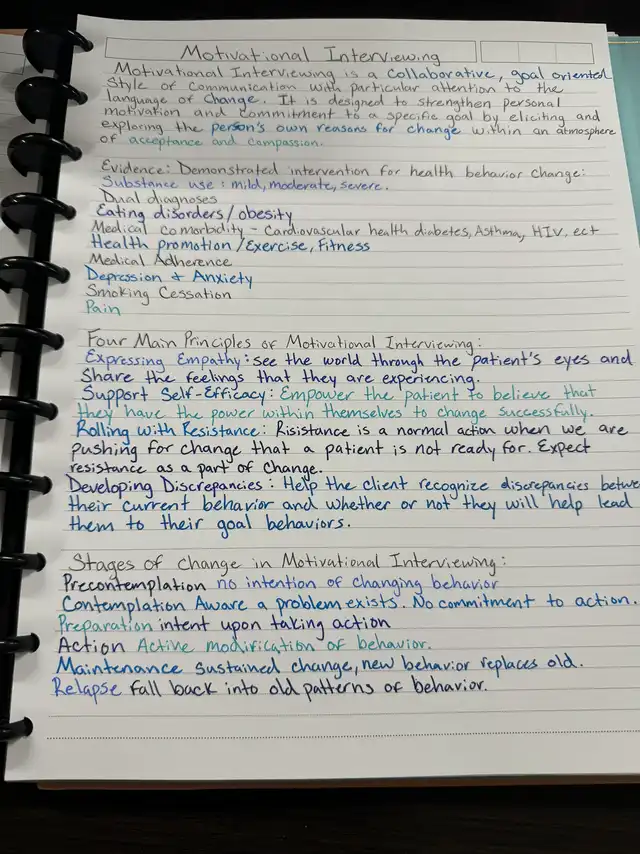 Motivational Interviewing
Motivational Interviewing is a collaborative, goal oriented
Style of communication with particular attention to the
language of change. It is designed to strengthen personal
motivation and commitment to a specific goal by eliciting and
exploring the person's own reasons for change within an atmosphere
of acceptance and compassion.
Evidence: Demonstrated intervention for health behavior change:
Substance use: mild, moderate, severe.
Dual diagnoses
Eating disorders/obesity
Medical comorbidity - Cardiovascular health diabetes, Asthma, HIV, ect
Health promotion/Exercise, Fitness
Medical Adherence
Depression + Anxiety
Smoking Cessation
Pain
Four Main Principles of Motivational Interviewing:
Expressing Empathy: see the world through the patient's eyes and
Share the feelings that they are experiencing.
Support Self-Efficacy: Empower the patient to believe that
they have the power within themselves to change successfully.
Rolling with Resistance: Risistance is a normal action when we are
pushing for change that a patient is not ready for. Expect
resistance as a part of change.
Developing Discrepancies: Help the client recognize discrepancies betwe
their current behavior and whether or not they will help lead
them to their goal behaviors.
Stages of change in Motivational Interviewing:
Precontemplation no intention of changing behavior
Contemplation Aware a problem exists. No commitment to action.
Preparation intent upon taking action
Action Active modification of behavior.
Maintenance Sustained change, new behavior replaces old.
Relapse fall back into old patterns of behavior.